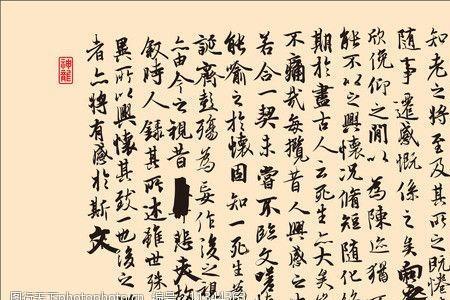 知老之將至及其所之既惓
隨事遷感慨係之矣向
欣俛仰之閒以為陳迹猶
能不以之興懷況脩短隨化
期於盡古人云死生亦大矣
不痛哉每攬昔人興感之
若合一契未嘗不臨文嗟
能喻之於懷固知一死生為
誕齊彭殤為妄作後之視
亦由今之視昔悲夫故
敘時人錄其所述雖世殊
異所以興懷其致一也後之
者亦將有感於斯文
神龍